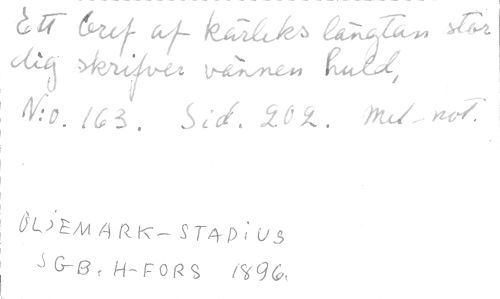 Ett bref af kärleks längtan stor
dig skrifver vännen huld,
N:o. 163. Sid. 202. Mel-not.
OLJEMARK-STADIUS
SGB. H-FORS 1896.